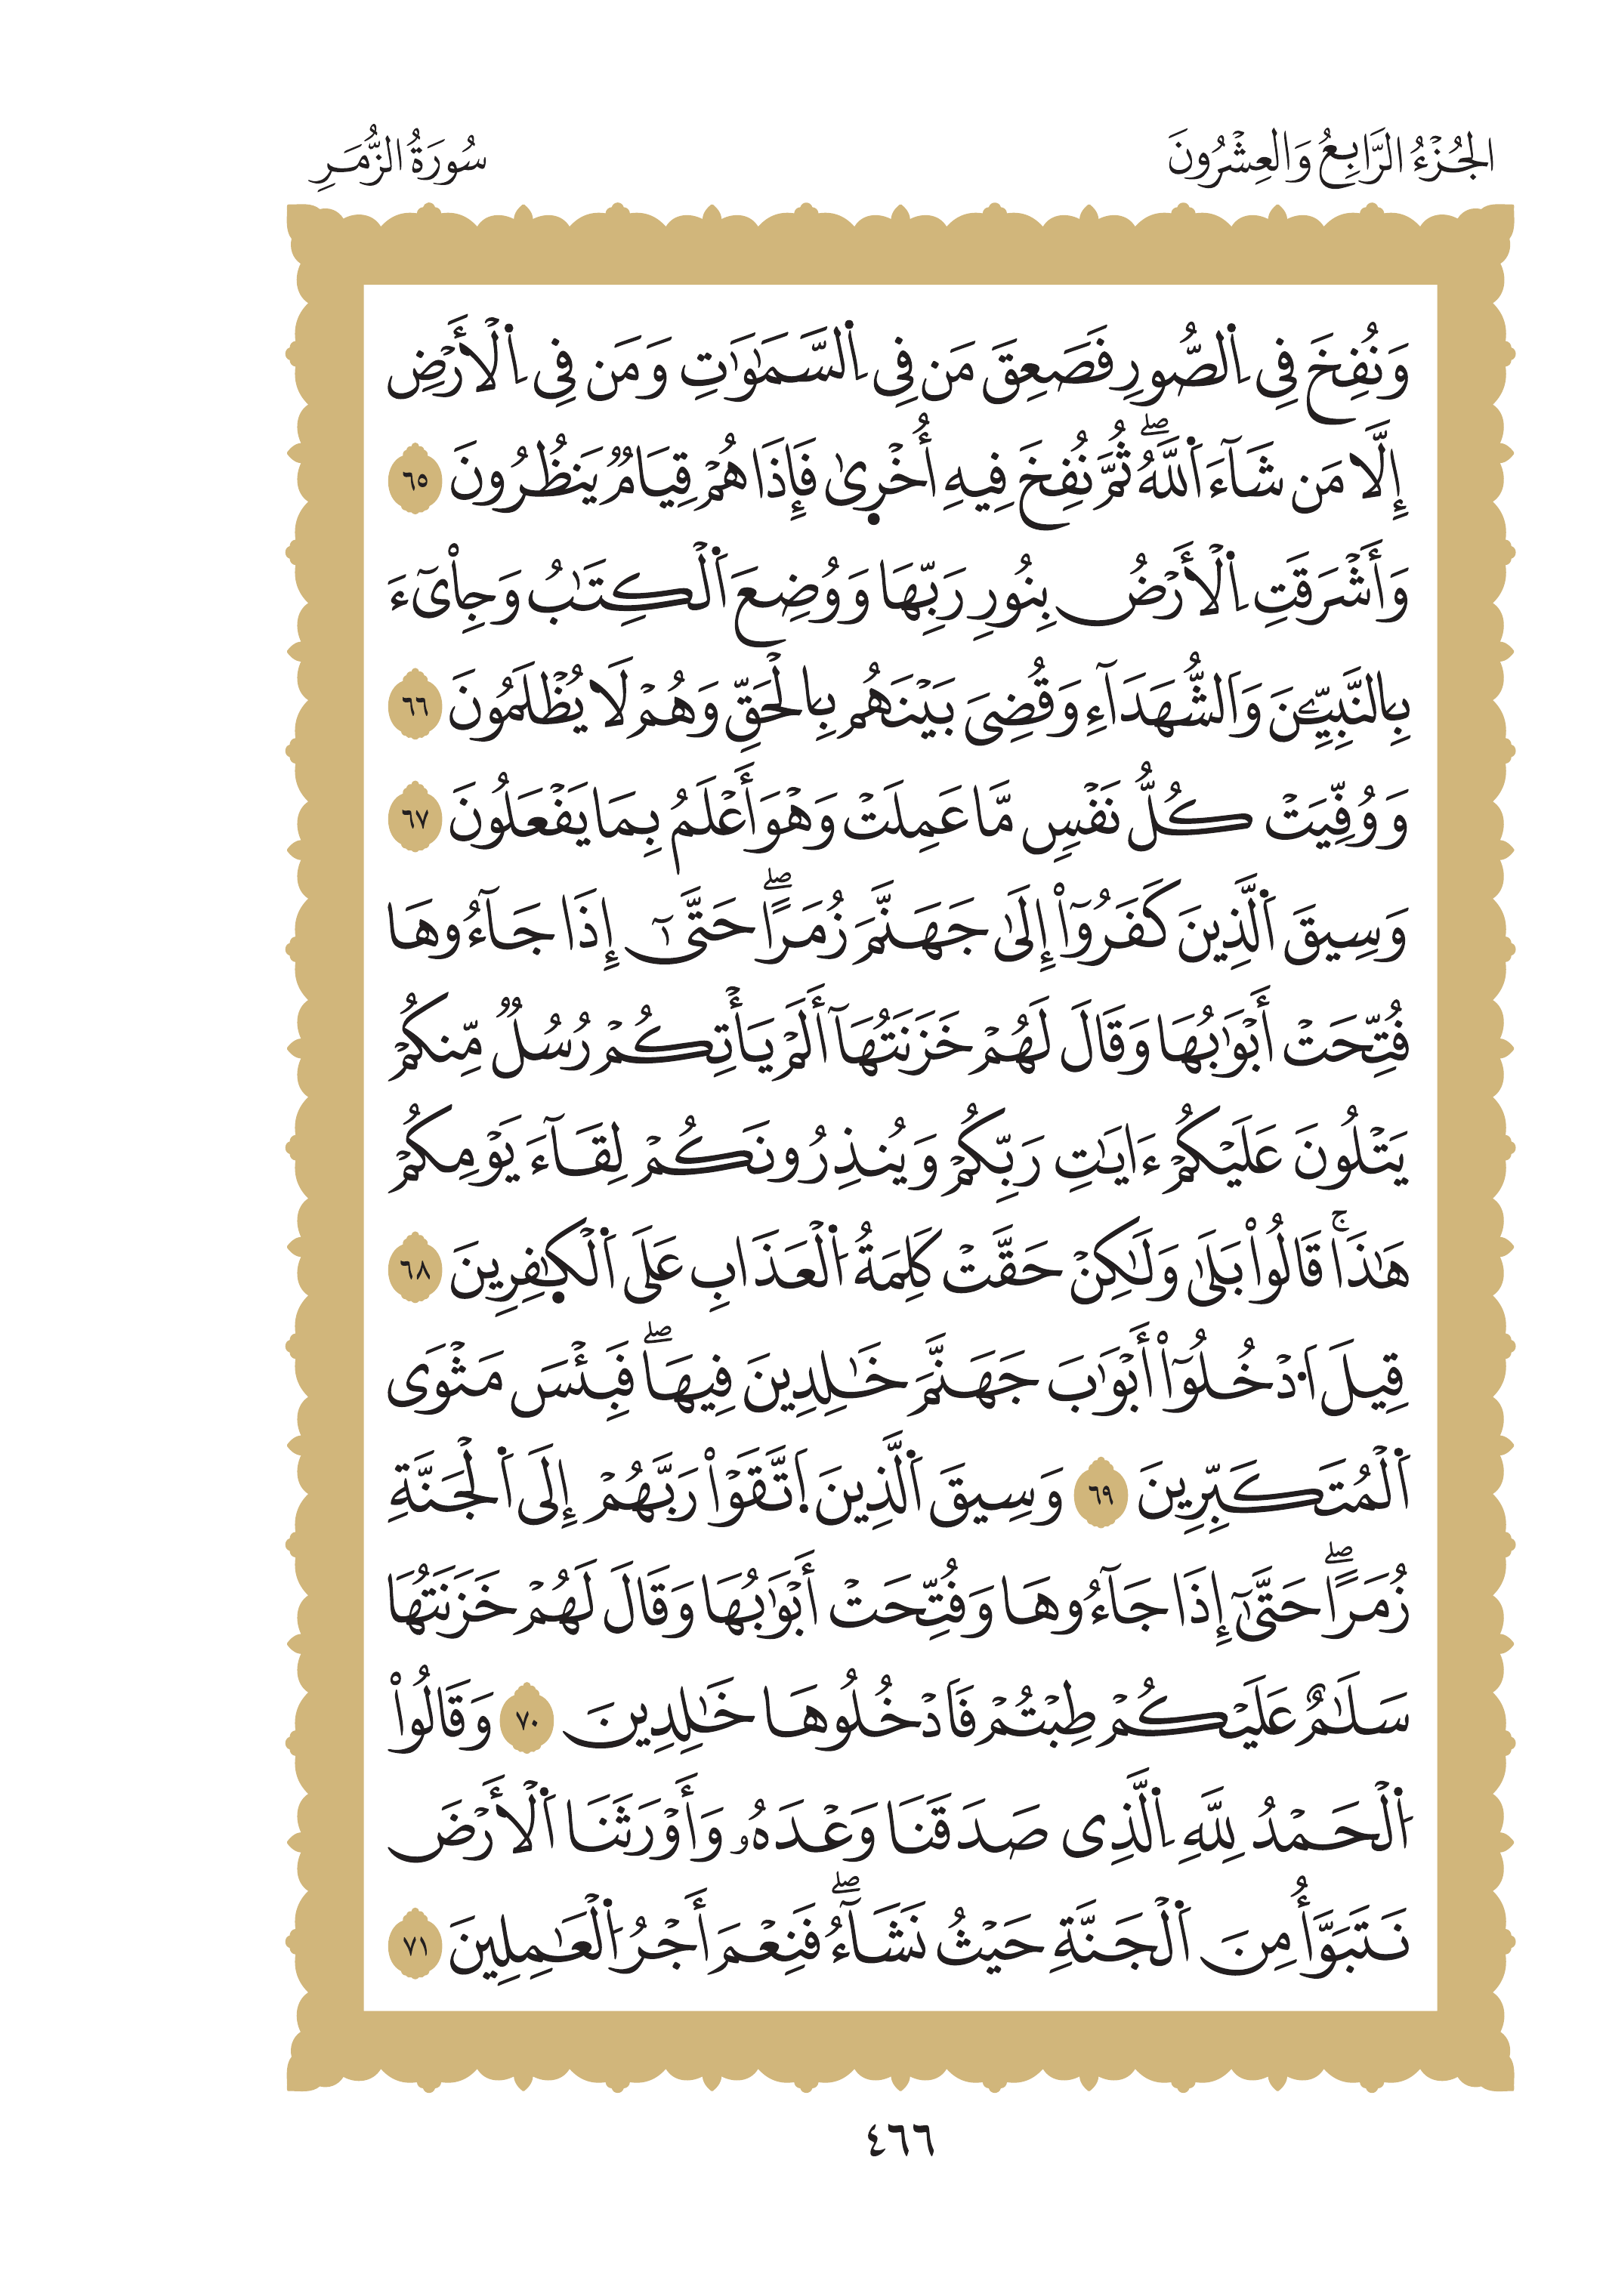 الجُزْءُ الرَّابِعُ وَالعِشْرُونَ
سُورَةُ الزُّمَرِ
وَنُفِخَ فِي اِ۬لصُّورِ فَصَعِقَ مَن فِي اِ۬لسَّمَٰوَٰتِ وَمَن فِي اِ۬لْأَرْضِ
إِلَّا مَن شَآءَ اَ۬للَّهُۖ ثُمَّ نُفِخَ فِيهِ أُخْرٜىٰ فَإِذَا هُمْ قِيَامٞ يَنظُرُونَ ٦٥
وَأَشْرَقَتِ اِ۬لْأَرْضُ بِنُورِ رَبِّهَا وَوُضِعَ اَ۬لْكِتَٰبُ وَجِاْيٓءَ
بِالنَّبِيِّـۧنَ وَالشُّهَدَآءِ وَقُضِيَ بَيْنَهُم بِالْحَقِّ وَهُمْ لَا يُظْلَمُونَ ٦٦
وَوُفِّيَتْ كُلُّ نَفْسٖ مَّا عَمِلَتْ وَهْوَ أَعْلَمُ بِمَا يَفْعَلُونَ ٦٧
وَسِيقَ اَ۬لَّذِينَ كَفَرُوٓاْ إِلَىٰ جَهَنَّمَ زُمَراًۖ حَتَّىٰٓ إِذَا جَآءُوهَا
فُتِّحَتْ أَبْوَٰبُهَا وَقَالَ لَهُمْ خَزَنَتُهَآ أَلَمْ يَأْتِكُمْ رُسُلٞ مِّنكُمْ
يَتْلُونَ عَلَيْكُمْ ءَايَٰتِ رَبِّكُمْ وَيُنذِرُونَكُمْ لِقَآءَ يَوْمِكُمْ
هَٰذَاۚ قَالُواْ بَلَىٰ وَلَٰكِنْ حَقَّتْ كَلِمَةُ اُ۬لْعَذَابِ عَلَى اَ۬لْكٰٜفِرِينَ ٦٨
قِيلَ اَ۟دْخُلُوٓاْ أَبْوَٰبَ جَهَنَّمَ خَٰلِدِينَ فِيهَاۖ فَبِئْسَ مَثْوَى
اَ۬لْمُتَكَبِّرِينَ ٦٩ وَسِيقَ اَ۬لَّذِينَ اَ۪تَّقَوْاْ رَبَّهُمْ إِلَى اَ۬لْجَنَّةِ
زُمَراًۖ حَتَّىٰٓ إِذَا جَآءُوهَا وَفُتِّحَتْ أَبْوَٰبُهَا وَقَالَ لَهُمْ خَزَنَتُهَا
سَلَٰمٌ عَلَيْكُمْ طِبْتُمْ فَادْخُلُوهَا خَٰلِدِينَ ٧٠ وَقَالُواْ
اُ۬لْحَمْدُ لِلَّهِ اِ۬لَّذِي صَدَقَنَا وَعْدَهُۥ وَأَوْرَثَنَا اَ۬لْأَرْضَ
نَتَبَوَّأُ مِنَ اَ۬لْجَنَّةِ حَيْثُ نَشَآءُۖ فَنِعْمَ أَجْرُ اُ۬لْعَٰمِلِينَ ٧١
٤٦٦